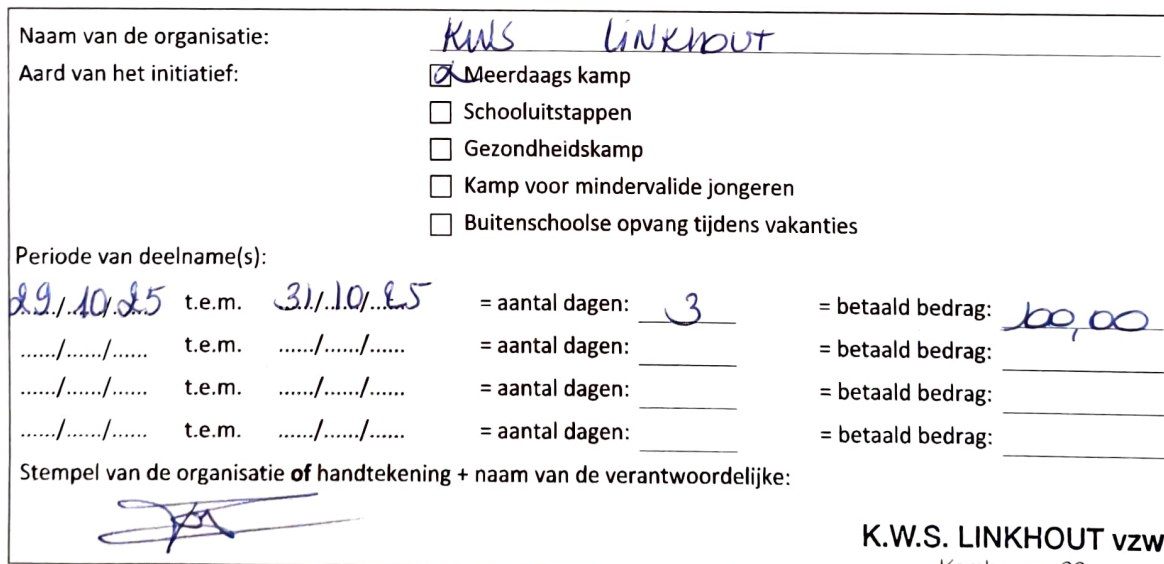 Naam van de organisatie: KWS LINKHOUT
Aard van het initiatief: ☒ Meerdaags kamp
☐ Schooluitstappen
☐ Gezondheidskamp
☐ Kamp voor mindervalide jongeren
☐ Buitenschoolse opvang tijdens vakanties
Periode van deelname(s):
29/10/25 t.e.m. 31/10/25 = aantal dagen: 3 = betaald bedrag: 100,00
....../....../...... t.e.m. ....../....../...... = aantal dagen: = betaald bedrag:
....../....../...... t.e.m. ....../....../...... = aantal dagen: = betaald bedrag:
....../....../...... t.e.m. ....../....../...... = aantal dagen: = betaald bedrag:
Stempel van de organisatie of handtekening + naam van de verantwoordelijke:
K.W.S. LINKHOUT vzw